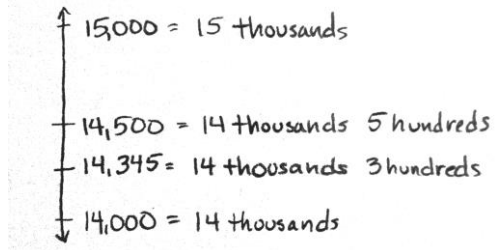 15,000 = 15 thousands
14,500 = 14 thousands 5 hundreds
14,345 = 14 thousands 3 hundreds
14,000 = 14 thousands